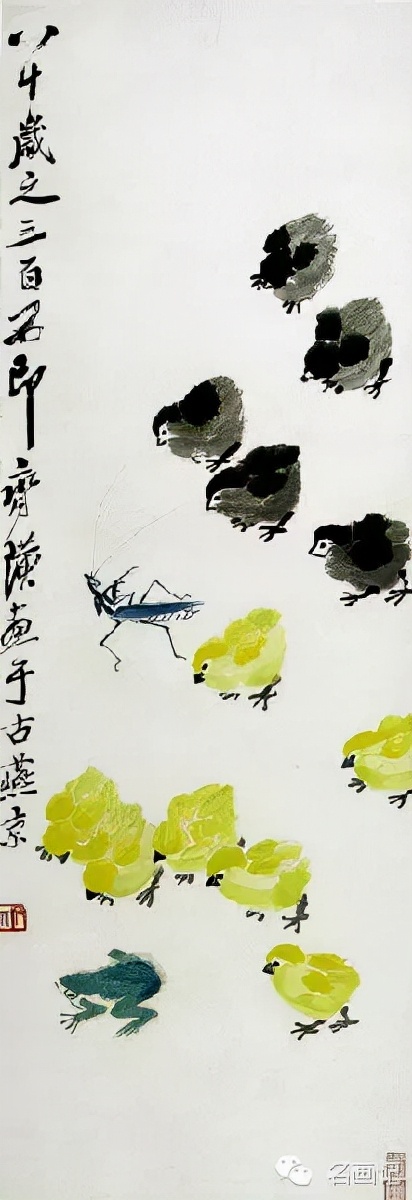 八十歲之三百石印齊璜画于古燕京
名画吧